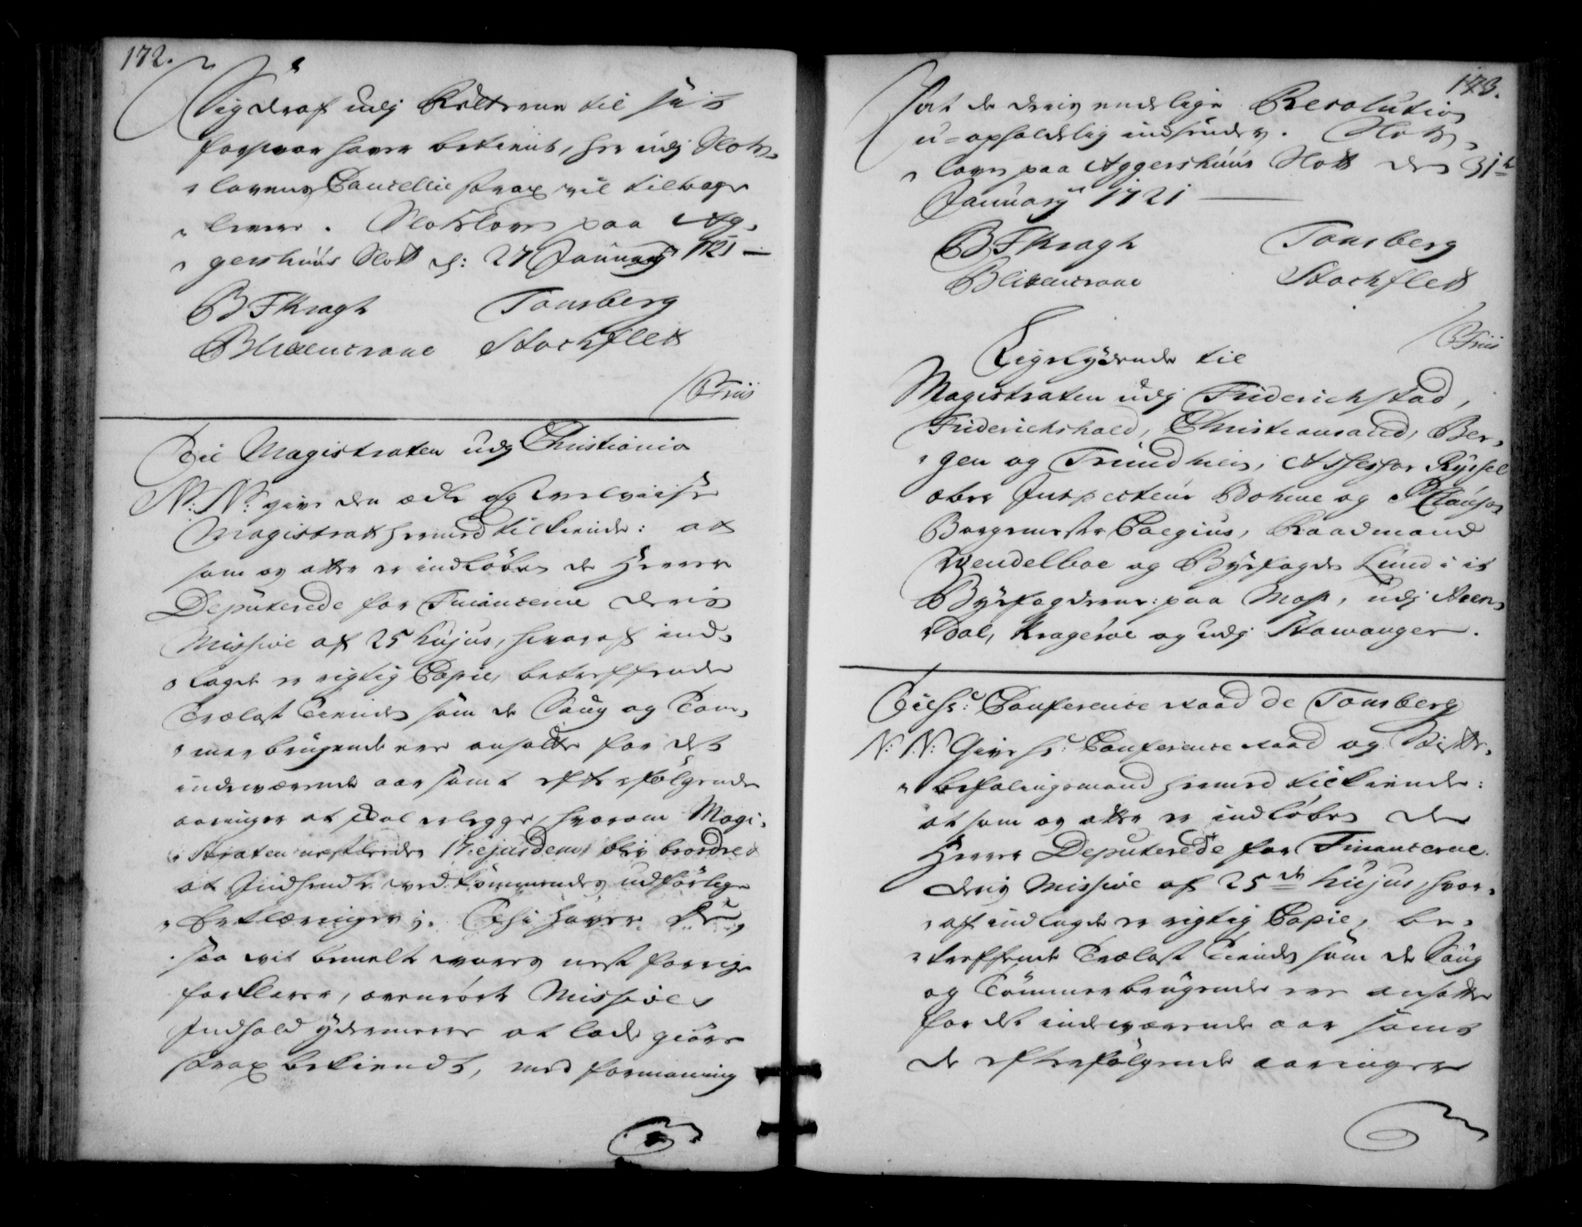 172.
Sig deraf udj Retterne til sit
forsvar hafver betient, her udj Slots-
lovens Cancellie strax vil tilbage
levere. Slotsloven paa Ag-
gershuus Slott d: 27 January 1721 —
B F Kragh Tonsberg
Blixencrone Stockflett
/ C Friis
Til Magistraten udj Christiania
N: N: give den ædle og velviise
Magistrat hermed tilkiende: at
som os atter er indløben de Herrer
Deputerede for Financerne deris
Missive af 25 hujus, hvoraf ind-
laget er rigtig Copie, betreffende
Trælast Tienden som de Saug og Tøm-
mer brugende ere ansatte for dets
indeværende aar samt efterfølgende
aaringer at skal erlegge, hvorom Magi-
straten nestleden 17 ejusdem blev beordret
at Indsende vedkommendes udførlige
Erklæringer;
saa vit bemelte nest forrige
forklarer, ovenrørt Missives
Indhold ydermeere at lade giøre
strax bekiendt, med formaning
173.
at de deris endelige Resolution
u-opholdelig indsender. Slots-
loven paa Aggershuus Slott den 31t
January 1721 —
B F Kragh Tonsberg
Blixencrone Stockflett
/ C Friis
Ligelydende til
Magistraten udj Friderichstad,
Friderichshald, Christiansand, Ber-
gen og Trundhiem, Assessor Ryssel
ober Inspecteur Bohme og P Clausøn
Borgemester Calgius, Raadmand
Wendelboe og Byefoged Lund i
Byefogderne: paa Moss, udj Aren-
dal, Kragerøe og udj Stawanger.
Til Hr: Conference Raad de Tonsberg
N: N: Give Hr: Conference Raad og Stifts-
befalingsmand hermed tilkiende:
at som os atter er indløben de
Herrer Deputerede for Financerne
deris Missive af 25de hujus, hvor-
af indlagde er rigtig Copie, be-
treffende Trælast Tienden som de Saug
og Tømmer brugende ere ansatte
for det indeværende aar samt
de efterfølgende aaringer